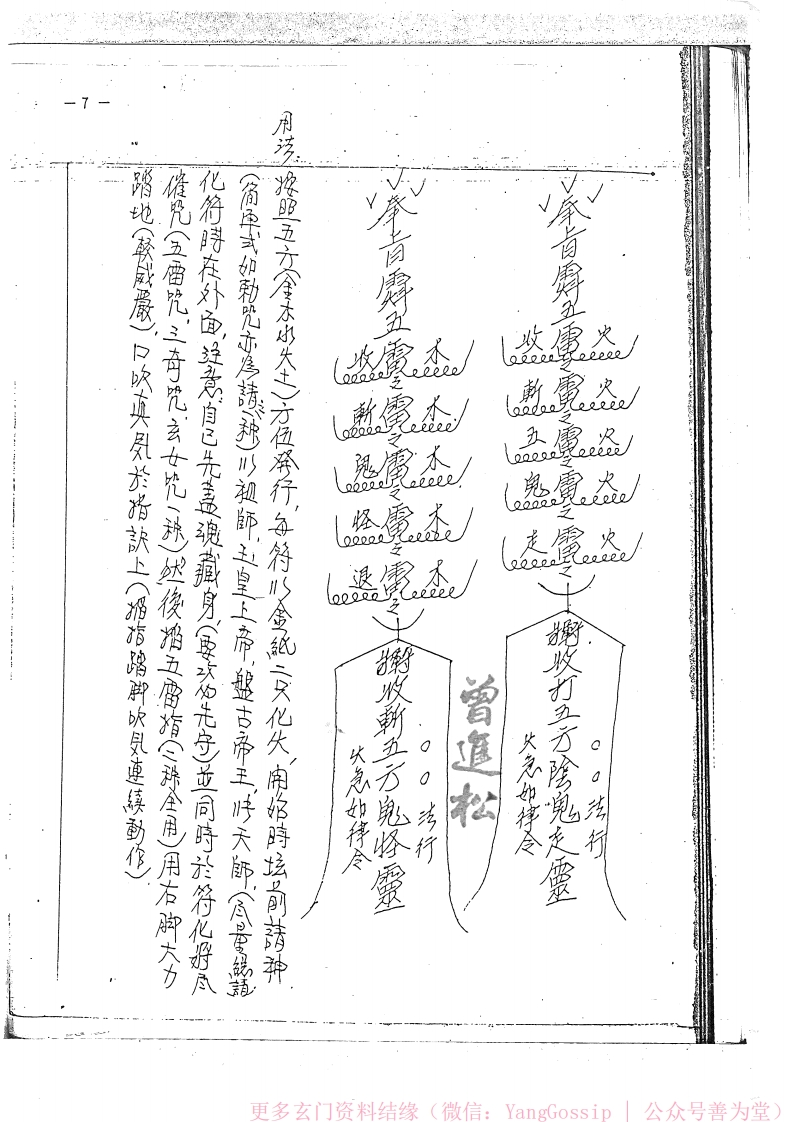 －7－
奉旨霹五雷之雷之雷之雷之雷之
收 火
斬 火
五 火
鬼 火
走 火
收打五方陰鬼走靈
○○法行
火急如律令
曾進松
奉旨霹五雷之雷之雷之雷之雷之
收 木
斬 木
鬼 木
怪 木
退 木
收斬五方鬼怪靈
○○法行
火急如律令
用法：按照五方(金木水火土)方位発行，每符以金紙二只化火，開始時坛前請神
(簡単式如勅咒亦為請，一种)以祖師，玉皇上帝，盤古帝王，张天師，(尽量総請)
化符時在外面，注意，自己先盖魂藏身，(要攻的先守)並同時於符化将尽
催咒(五雷咒，三奇咒，玄女咒一种)然後掐五雷指(二种全用)用右脚大力
踏地(較威嚴)口吹真気於指訣上(掐指踏脚吹気連續動作)
更多玄门资料结缘（微信：YangGossip | 公众号善为堂）